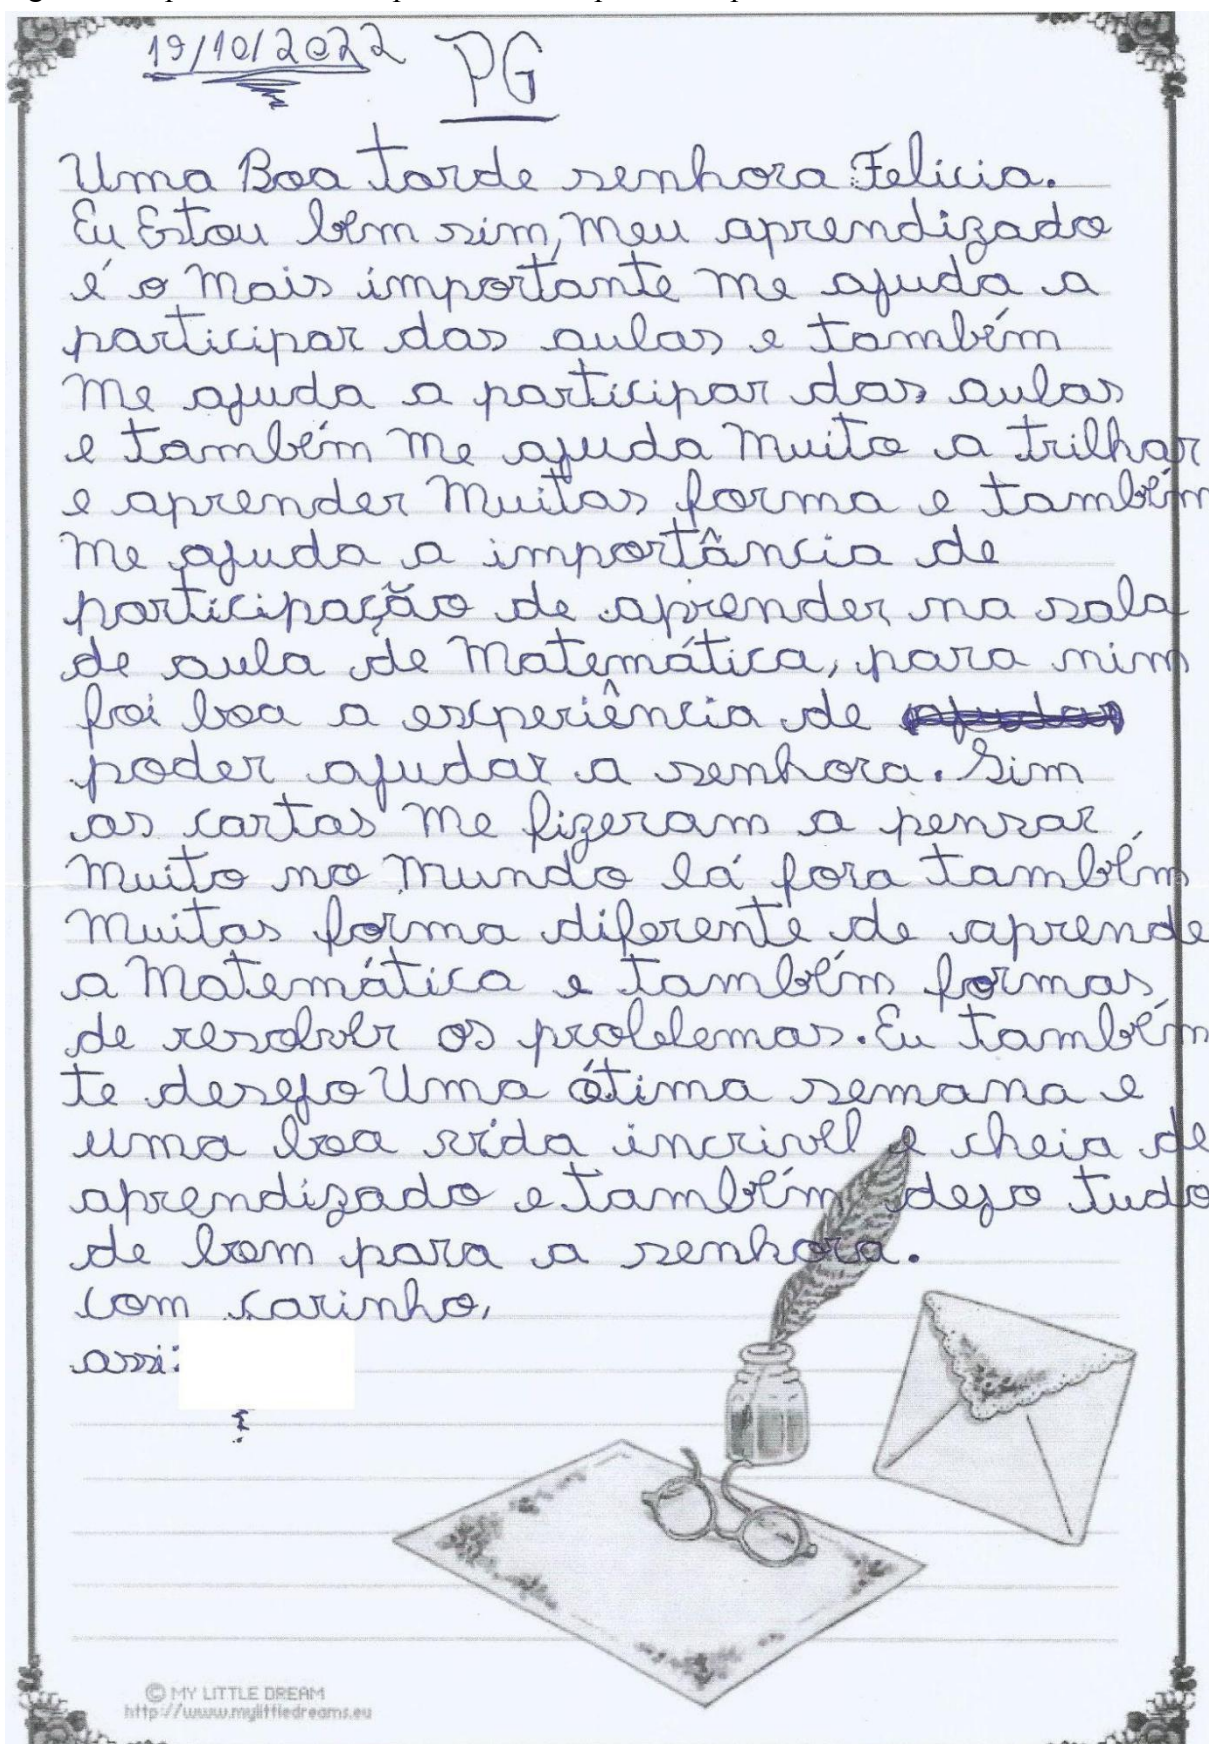 19/10/2022 PG
Uma Boa tarde senhora Felicia.
Eu Estou bem sim, Meu aprendizado
é o Mais importante me ajuda a
participar das aulas e também
Me ajuda a participar das aulas
e também Me ajuda Muito a trilhar
e aprender Muitas forma e também
Me ajuda a importância de
participação de aprender na sala
de aula de Matemática, para mim
foi boa a experiência de
poder ajudar a senhora. Sim
as cartas Me fizeram a pensar
Muito no Mundo lá fora também
Muitas forma diferente de aprende
a Matemática e também formas
de resolver os problemas. Eu também
te desejo Uma ótima semana e
uma boa vida incrivel e cheia de
aprendizado e também dejo tudo
de bom para a senhora.
com carinho,
assi:
© MY LITTLE DREAM
http://www.mylittledreams.eu